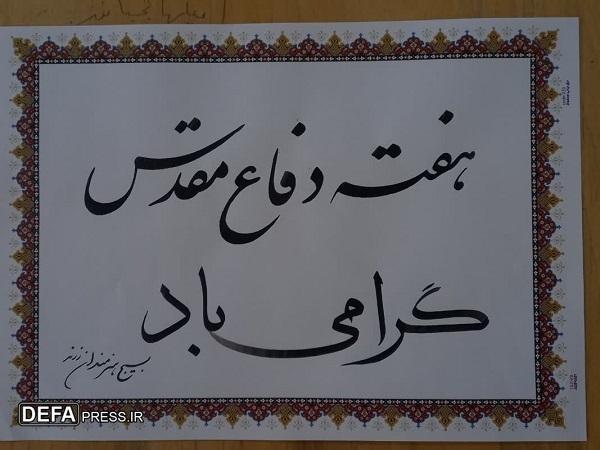 هفته دفاع مقدس
گرامی باد
بسیج هنرمندان زرند
DEFAPRESS.IR